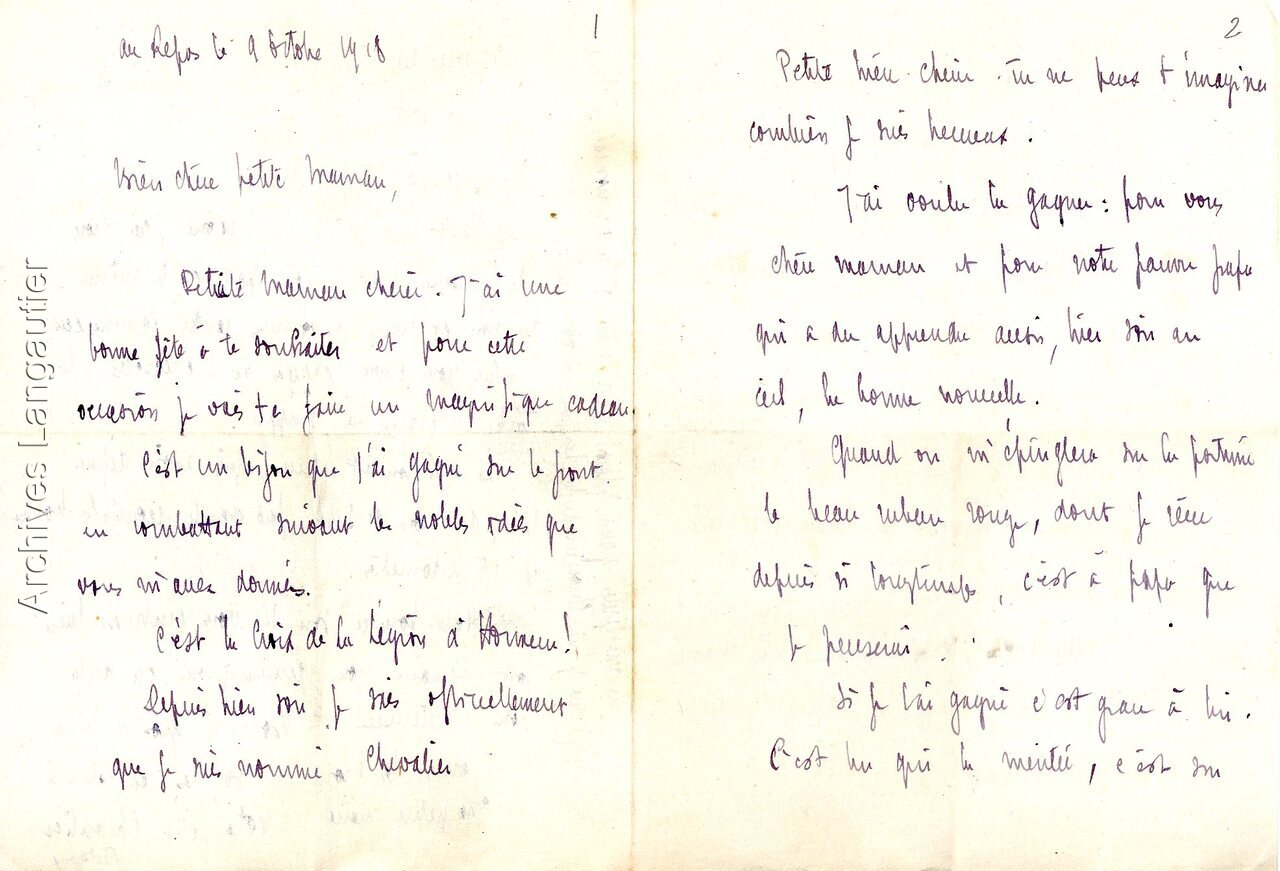 au Repos le 9 Octobre 1918
1
Bien chère petite Maman,
Petite Maman chérie. J'ai une
bonne fête à te souhaiter et pour cette
occasion je vais te faire un magnifique cadeau.
C'est un bijou que j'ai gagné sur le front
en combattant suivant les nobles idées que
vous m'avez données.
C'est la Croix de la Légion d'Honneur!
Depuis hier soir je sais officiellement
que je suis nommé Chevalier
2
Petite Mère chérie tu ne peux t'imaginer
combien je suis heureux.
J'ai voulu la gagner : pour vous
chère maman et pour notre pauvre papa
qui a du apprendre aussi, hier soir au
ciel, la bonne nouvelle.
Quand on m'épinglera sur la poitrine
le beau ruban rouge, dont je rêve
depuis si longtemps, c'est à papa que
je penserai.
Si je l'ai gagné c'est grace à lui.
C'est lui qui la mérite, c'est son
Archives Langautier